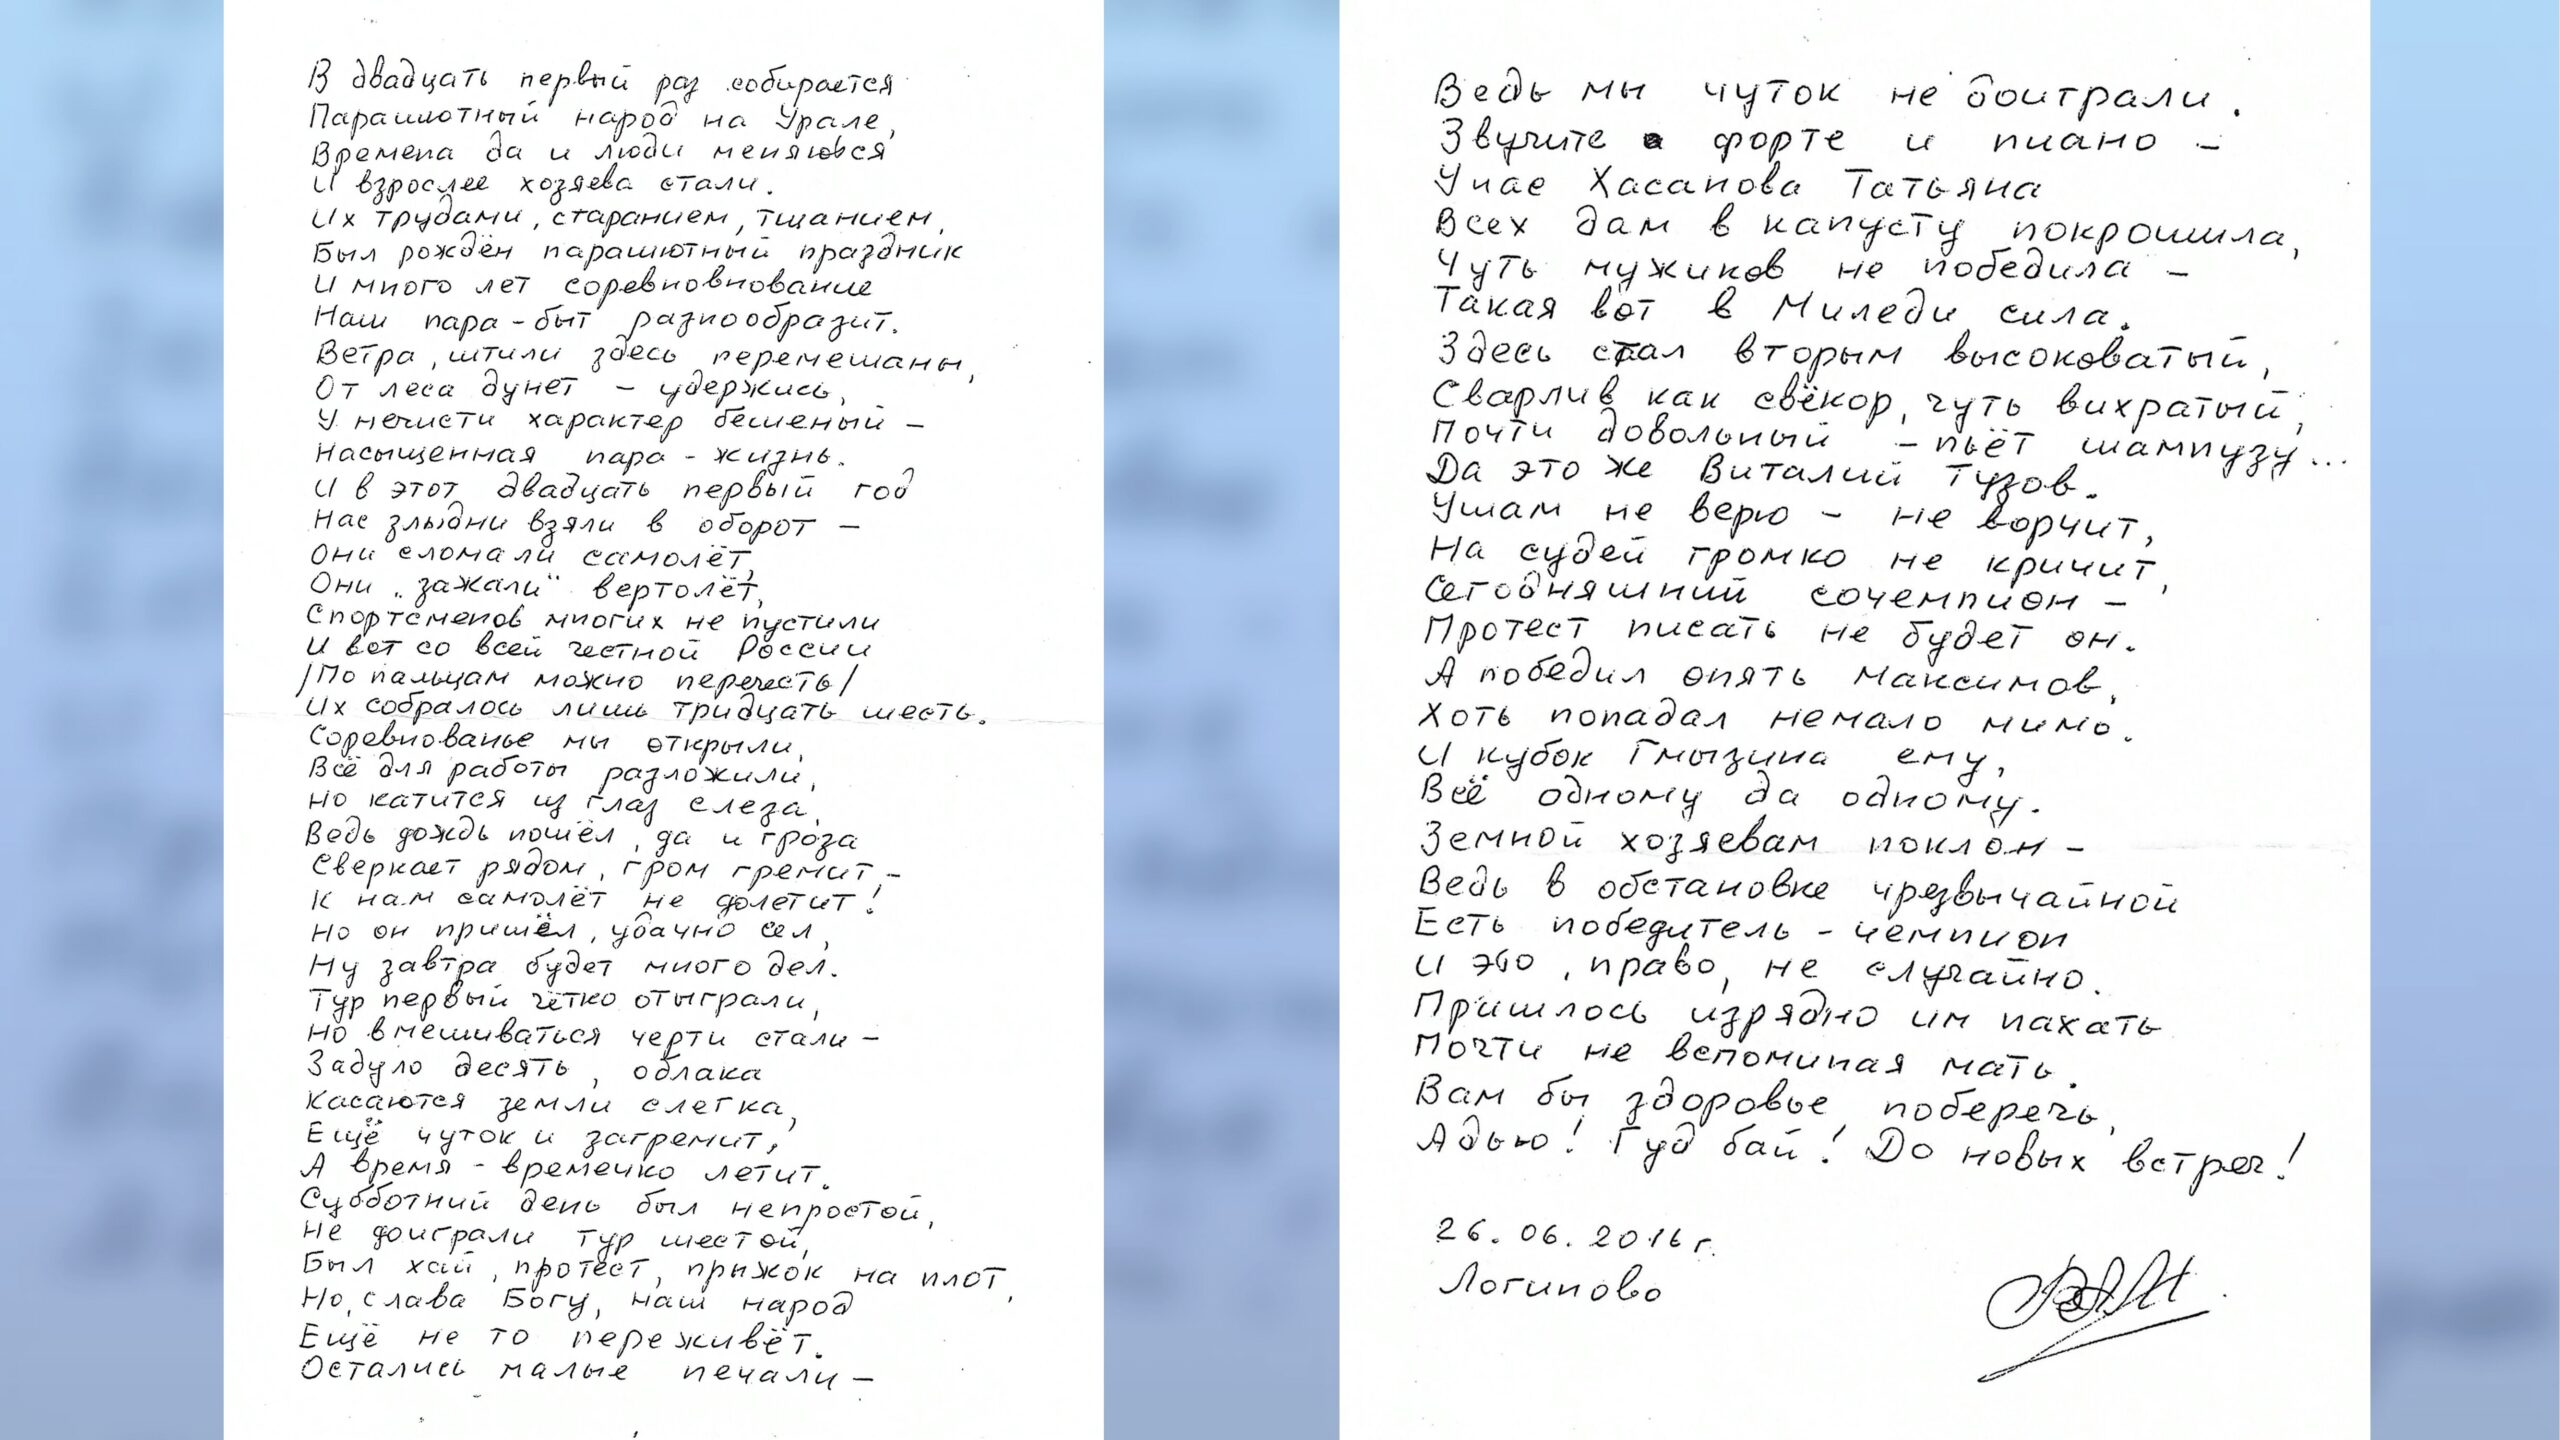 В двадцать первый раз собирается
Парашютный народ на Урале,
Времена да и люди меняются
И взрослее хозяева стали.
Их трудами, старанием, тщанием,
Был рождён парашютный праздник
И много лет соревновнование
Наш пара-быт разнообразит.
Ветра, штили здесь перемешаны,
От леса дунет – удержись,
У нечисти характер бешеный –
Насыщенная пара-жизнь.
И в этот двадцать первый год
Нас злыдни взяли в оборот –
Они сломали самолёт,
Они „зажали" вертолёт,
Спортсменов многих не пустили
И вот со всей честной России
/По пальцам можно перечесть/
Их собралось лишь тридцать шесть.
Соревнованье мы открыли,
Всё для работы разложили,
Но катится из глаз слеза,
Ведь дождь пошёл, да и гроза
Сверкает рядом, гром гремит, –
К нам самолёт не долетит!
Но он пришёл, удачно сел,
Ну завтра будет много дел.
Тур первый чётко отыграли,
Но вмешиваться черти стали –
Задуло десять, облака
Касаются земли слегка,
Ещё чуток и загремит,
А время - времечко летит.
Субботний день был непростой,
Не доиграли тур шестой,
Был хай, протест, прыжок на плот,
Но, слава Богу, наш народ
Ещё не то переживёт.
Остались малые печали –
Ведь мы чуток не доиграли.
Звучите форте и пиано –
У нас Хасанова Татьяна
Всех дам в капусту покрошила,
Чуть мужиков не победила –
Такая вот в Миледи сила.
Здесь стал вторым высоковатый,
Сварлив как свёкор, чуть вихратый,
Почти довольный – пьёт шампузу...
Да это же Виталий Тузов.
Ушам не верю – не ворчит,
На судей громко не кричит,
Сегодняшний сочемпион –
Протест писать не будет он.
А победил опять Максимов,
Хоть попадал немало мимо.
И кубок Гмызина ему,
Всё одному да одному.
Земной хозяевам поклон –
Ведь в обстановке чрезвычайной
Есть победитель – чемпион
И это, право, не случайно.
Пришлось изрядно им пахать
Почти не вспоминая мать.
Вам бы здоровье поберечь,
Адью! Гуд бай! До новых встреч!
26.06.2016г.
Логиново